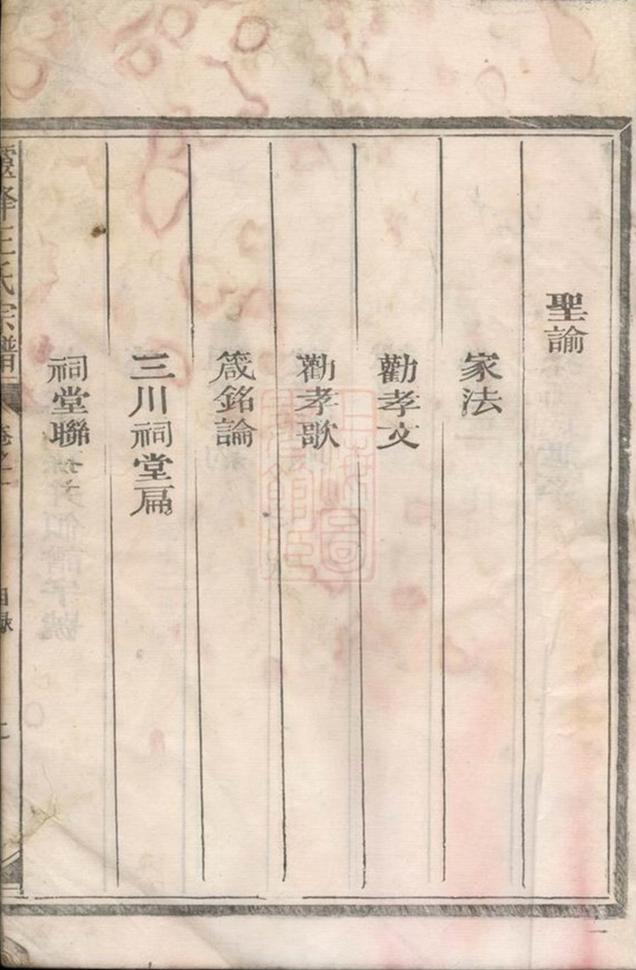 聖諭
家法
勸孝文
勸孝歌
箴銘論
三川祠堂扁
祠堂聯
王氏宗譜
卷之一
目錄